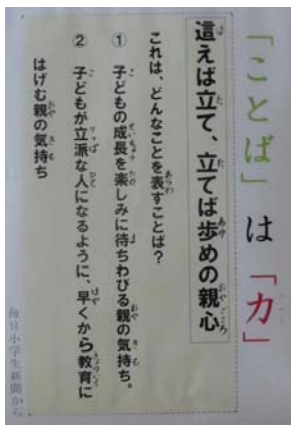 「ことば」は「力」
這えば立て、立てば歩めの親心
これは、どんなことを表すことば?
① 子どもの成長を楽しみに待ちわびる親の気持ち。
② 子どもが立派な人になるように、早くから教育に
はげむ親の気持ち
毎日小学生新聞から